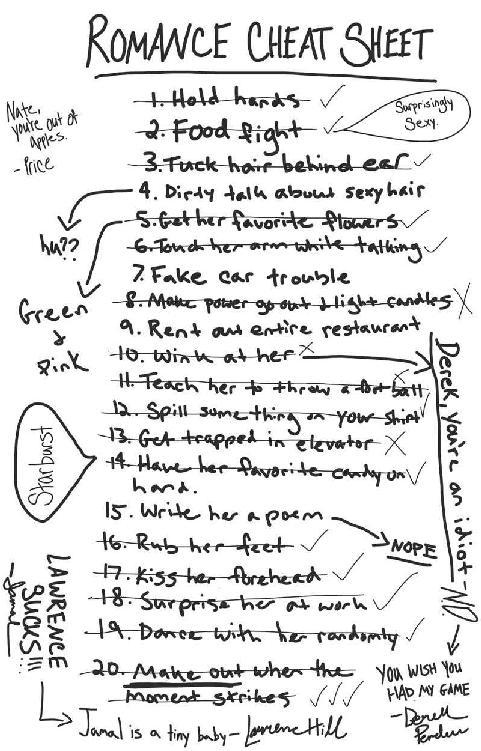 ROMANCE CHEAT SHEET
Nate,
you're out of
apples.
- Price
1. Hold hands ✓
2. Food fight ✓
Surprisingly
Sexy.
3. Tuck hair behind ear ✓
4. Dirty talk about sexy hair
hu??
5. Get her favorite flowers ✓
Green
+
Pink
6. Touch her arm while talking ✓
7. Fake car trouble
8. Make power go out & light candles X
9. Rent out entire restaurant
10. Wink at her X
Derek, you're an idiot - ND.
11. Teach her to throw a football X
12. Spill something on your shirt ✓
13. Get trapped in elevator X
14. Have her favorite candy on ✓
hand.
Starburst
15. Write her a poem
NOPE
16. Rub her feet ✓
17. Kiss her forehead ✓
18. Surprise her at work ✓
19. Dance with her randomly ✓
20. Make out when the
moment strikes ✓✓✓
LAWRENCE
SUCKS!!!
- Jamal
Jamal is a tiny baby - Lawrence Hill
YOU WISH YOU
HAD MY GAME
- Derek
Perdue